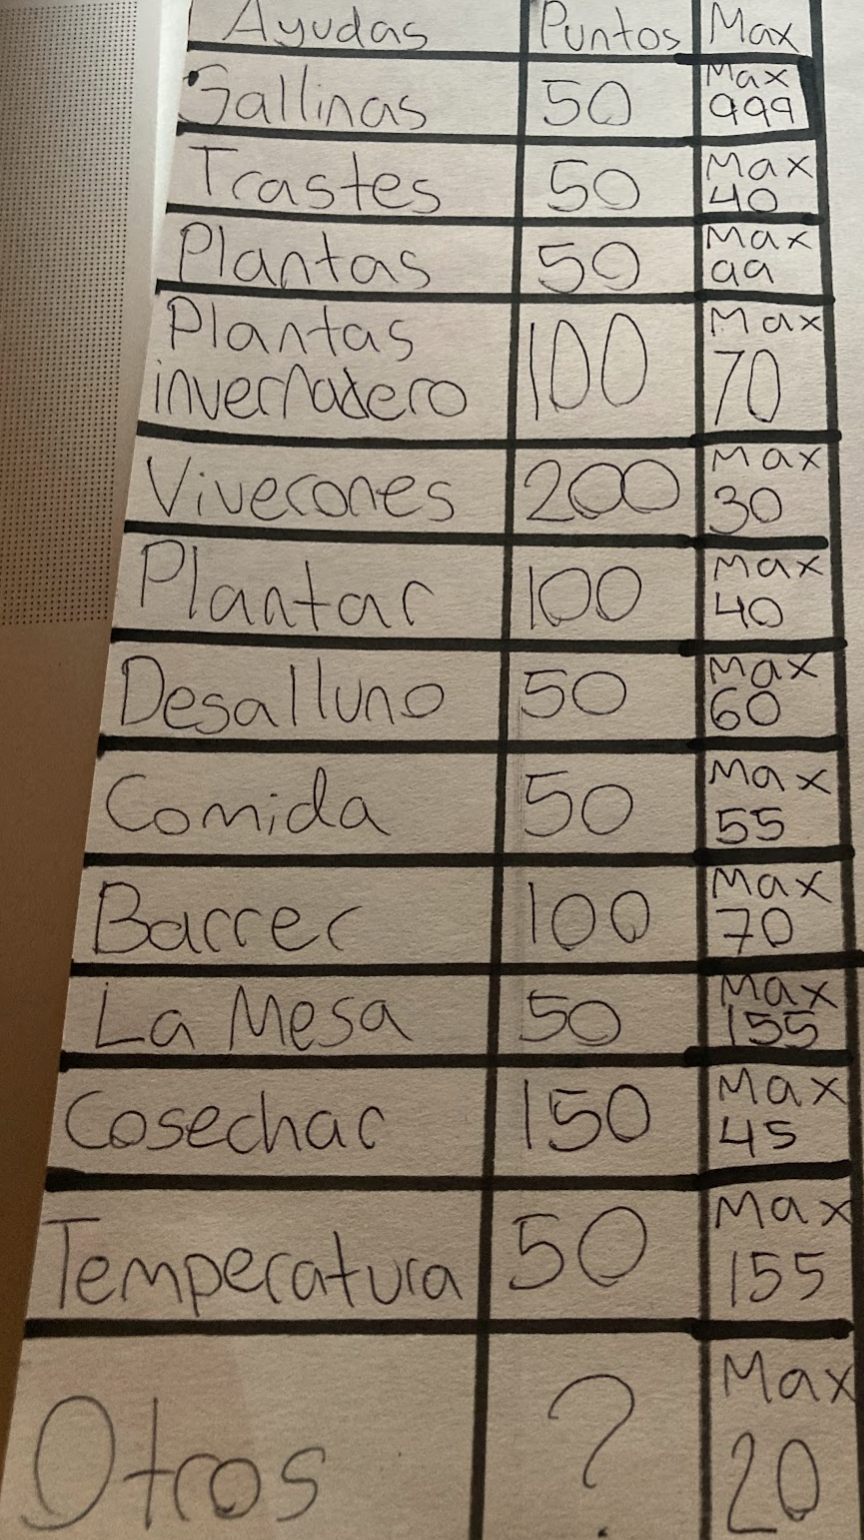 Ayudas Puntos Max
Gallinas 50 Max 999
Trastes 50 Max 40
Plantas 50 Max 99
Plantas
invernadero 100 Max 70
Viverones 200 Max 30
Plantar 100 Max 40
Desalluno 50 Max 60
Comida 50 Max 55
Barrer 100 Max 70
La Mesa 50 Max 155
Cosechar 150 Max 45
Temperatura 50 Max 155
Otros ? Max 20